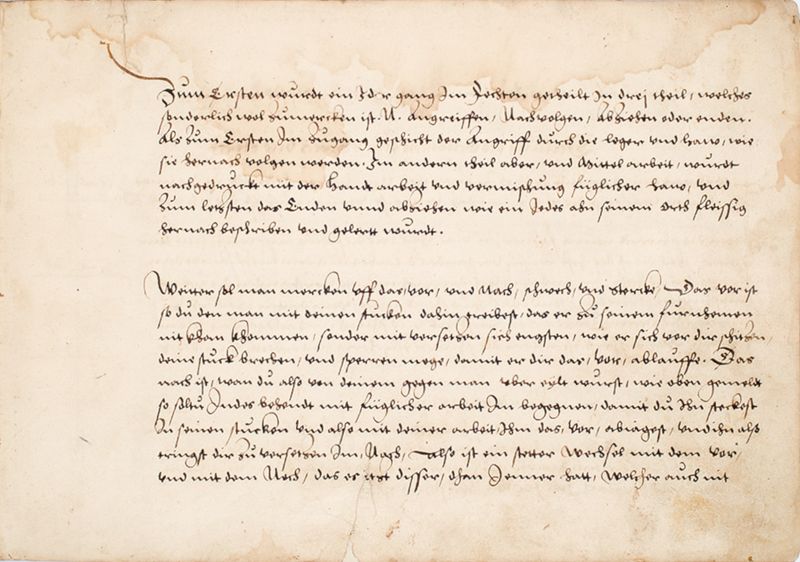 Zum Ersten wurdt ein Jder gang Im Fechten getheilt In drej theil, welches
sonderlich wol zumercken ist. N. Angreiffen, Nachvolgen, Abziehen oder enden.
Als zum Ersten Im zugang geschicht der Angriff durch die leger und haw, wie
sie hernach volgen werden. Im andern theil aber, und Mittel arbeit, wurdt
nachgedruckt mit der Handt arbeit und vermischung füglicher haw, und
zum letzsten das Enden unnd abziehen wie ein Jedes ahn seinem orth fleissig
hernach beschriben und gelertt wurdt.
Weitter sol man mercken uff das, vor, und Nach, schwech, und stercke, Das vor ist
so du den man mit deinen stucken dahin greibest, das er zu seinem furnehmen
nit kham khommen, sonder mit versetzen sich engsten, wie er sich vor dir schitzen,
deine stuck brechen, und sperren mege, damit er dir das, vor, ablauffe. Das
nach ist, wan du also von deinem gegen man uber eylt wurst, wie oben gemeldt
so soltu Indes behendt mit füglicher arbeit Im begegnen, damit du Ihn steckest
In seinen stucken und also mit deiner arbeit Ihm das, vor, abiagest, und ihn also
tringst dir zu versetzen Im, Nach, Also ist ein stetter Wechsel mit dem vor,
und mit dem Nach, das es itzt disser, dhan Jenner hatt, welcher auch nit